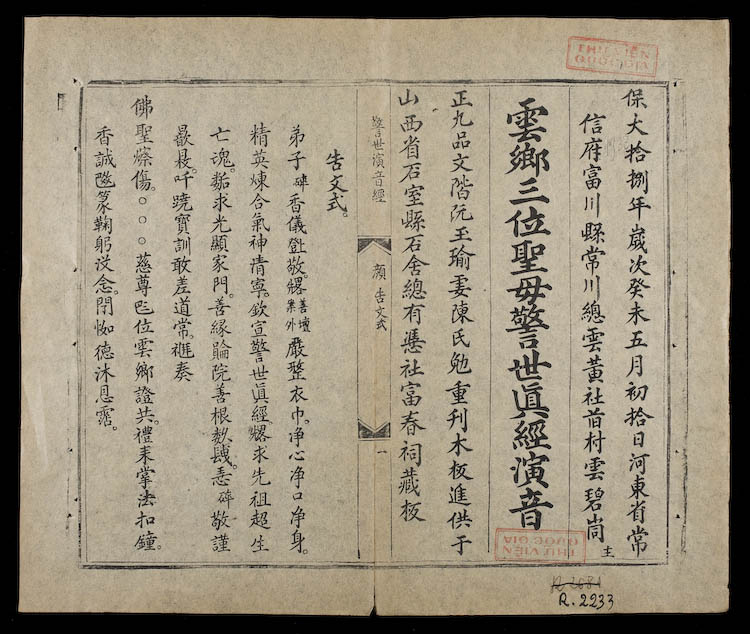 保大拾捌年歲次癸未五月初拾日河東省常
信府富川縣常川總雲黃社首村雲碧尚
主
雲鄉三位聖母警世真經演音
正九品文階阮玉瑜妻陳氏勉重刊木板進供于
山西省石室縣石舍總有憑社富春祠藏板
警世演音經
顏 告文式
一
告文式。
弟子碎香儀 敬 善壇 案外 嚴整衣巾。净心净口净身。
精英煉合氣神清寧。欽宣警世真經 求先祖超生
亡魂。 求光顯家門。善緣 院善根 碎敬謹
吀 寶訓敢差道常。 奏
佛聖 傷。○○○慈尊 位雲鄉證共。禮 掌法扣鐘。
香誠 篆鞠躬 念。閉 德沐恩 。
THƯ VIỆN
QUỐC GIA
THƯ VIỆN
QUỐC GIA
R.2233